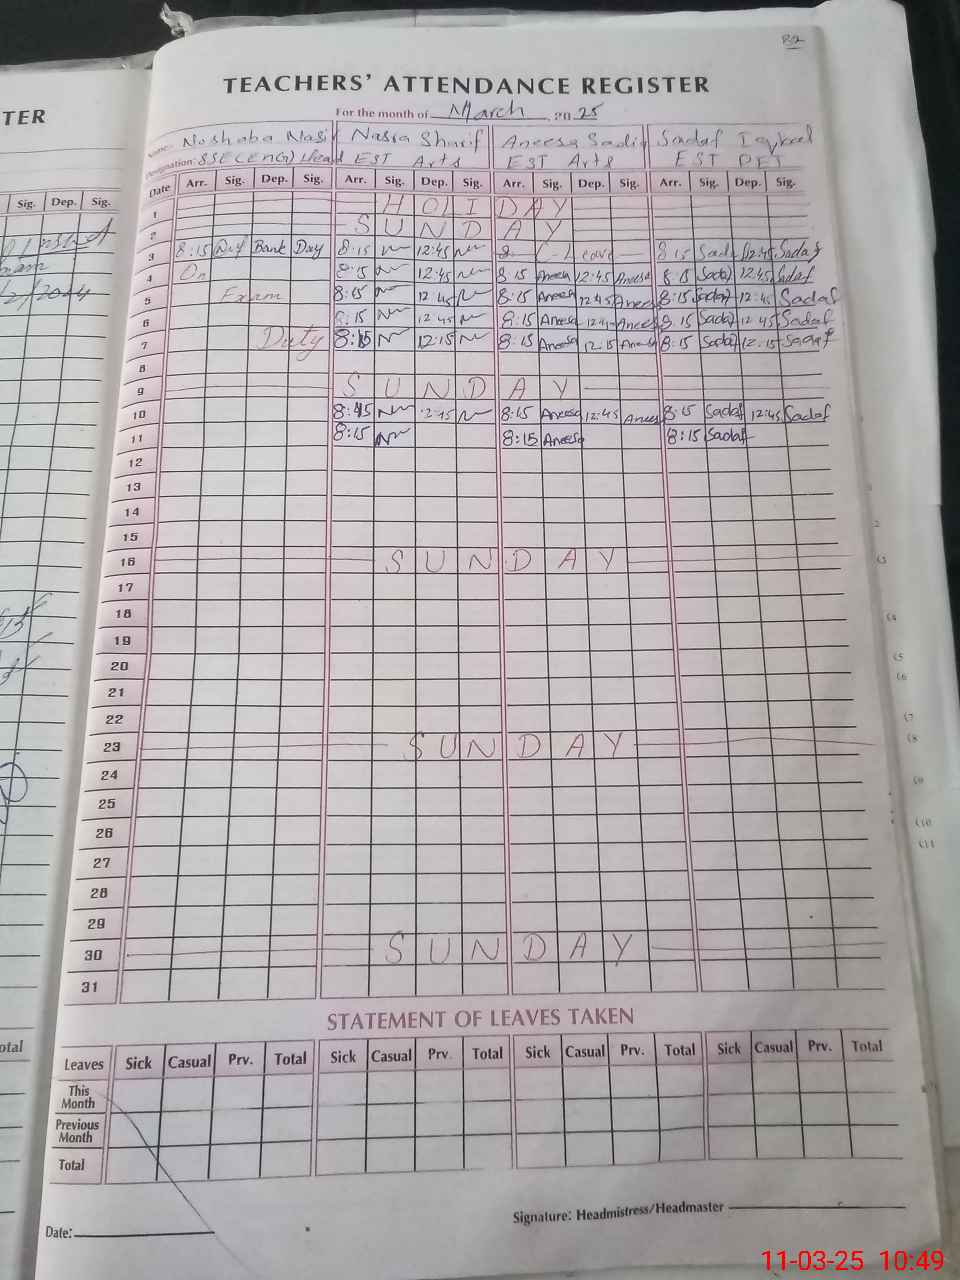 82
TEACHERS' ATTENDANCE REGISTER
TER
For the month of March, 20 25
Name: Noshaba Nasir Nasra Sharif Aneesa Sadiq Sadaf Iqbal
Designation: SSE(ENG) Head EST Arts EST Arts EST PET
Sig. Dep. Sig.
Date Arr. Sig. Dep. Sig. Arr. Sig. Dep. Sig. Arr. Sig. Dep. Sig. Arr. Sig. Dep. Sig.
1 HOLIDAY
2 SUNDAY
3 8:15 Bank Day 8:15 12:45 Leave 8:15 Sadaf 12:45 Sadaf
4 On 8:15 12:45 8:15 Aneesa 12:45 Aneesa 8:15 Sadaf 12:45 Sadaf
5 Exam 8:15 12:45 8:15 Aneesa 12:45 Aneesa 8:15 Sadaf 12:45 Sadaf
6 8:15 12:45 8:15 Aneesa 12:45 Aneesa 8:15 Sadaf 12:45 Sadaf
7 Duty 8:15 12:15 8:15 Aneesa 12:15 Aneesa 8:15 Sadaf 12:15 Sadaf
8
9 SUNDAY
10 8:15 8:15 Aneesa 12:45 Aneesa 8:15 Sadaf 12:45 Sadaf
11 8:15 8:15 Aneesa 8:15 Sadaf
12
13
14
15
16 SUNDAY
17
18
19
20
21
22
23 SUNDAY
24
25
26
27
28
29
30 SUNDAY
31
STATEMENT OF LEAVES TAKEN
otal
Leaves Sick Casual Prv. Total Sick Casual Prv. Total Sick Casual Prv. Total Sick Casual Prv. Total
This Month
Previous Month
Total
Date:
Signature: Headmistress/Headmaster
11-03-25 10:49